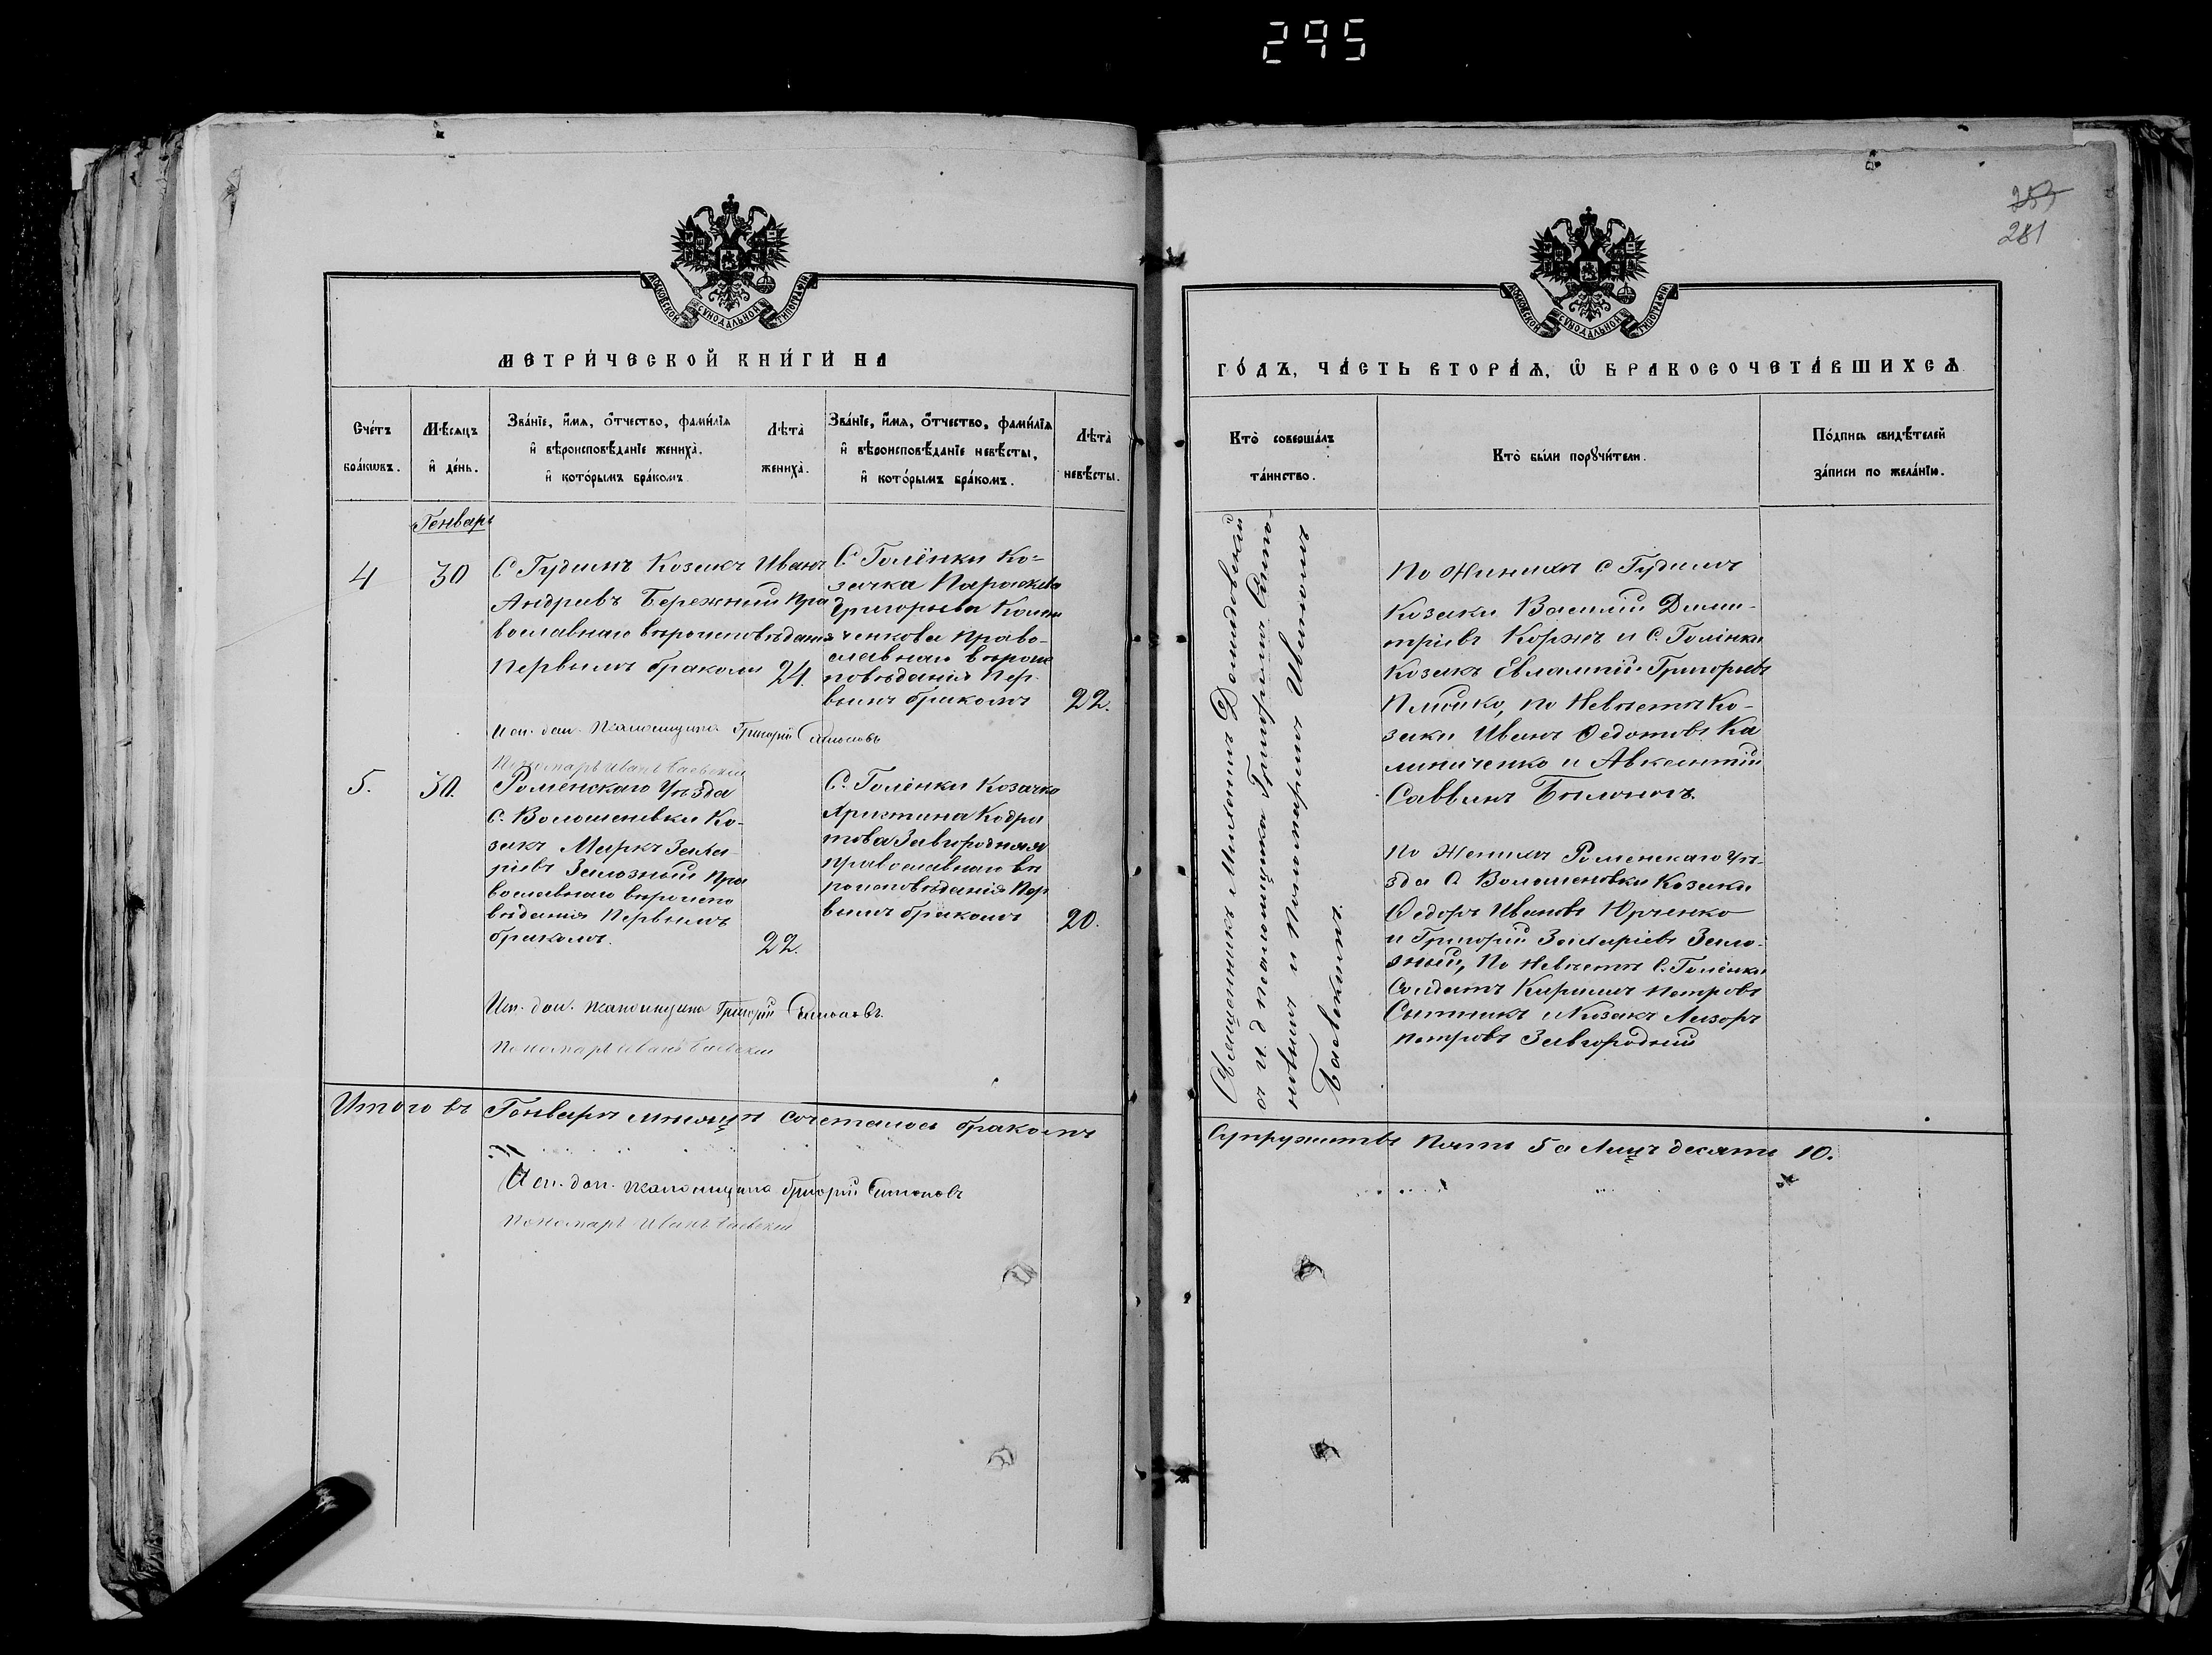 295
253
281
МОСКОВСКОЙ СѴНОДАЛЬНОЙ ТИПОГРАФІИ
МЕТРИ́ЧЕСКОЙ КНИ́ГИ НА
Сче́тъ бра́кωвъ.
Мѣ́сяцъ и҆ де́нь.
Зва́нїе, и҆́мя, ѻ҆́тчество, фами́лїя
и҆ вѣроисповѣ́данїе жениха̀,
и҆ кото́рымъ бра́комъ
Лѣта̀ жениха̀.
Зва́нїе, и҆́мя, ѻ҆́тчество, фами́лїя
и҆ вѣроисповѣ́данїе невѣ́сты,
и҆ кото́рымъ бра́комъ.
Лѣта̀ невѣ́сты.
Генварь
4
30
С Гудимъ Козакъ Иванъ
Андреевъ Бережный Пра
вославнаго вѣроисповѣданія
Первымъ бракомъ
24.
С. Голёнки Ко=
зачка Параскева
Григорьева Кали
ченкова Право-
славнаго вѣроис
повѣданія Пер-
вымъ бракомъ
22.
Исп. дол. Псаломщика Григорій Симоновъ
Пономарь Иванъ Баевскій
5.
30.
Роменскаго Уѣзда
С. Волошеновки Ко-
закъ Маркъ Заха-
ріевъ Зилозный Пра
вославнаго вѣроиспо
вѣданія Первымъ
бракомъ.
22.
С. Голёнки Козачка
Христина Кодра
това Завгородная
Православнаго вѣ
роисповѣданія Пер
вымъ бракомъ
20.
Исп. дол. Псаломщика Григорій Симоновъ.
Пономарь Иванъ Баевскій
Итого въ Генварѣ мѣсяцѣ сочеталось бракомъ
Исп. дол. Псаломщика Григорій Симоновъ
Пономарь Иванъ Баевскій
МОСКОВСКОЙ СѴНОДАЛЬНОЙ ТИПОГРАФІИ
ГО́ДЪ, ЧА́СТЬ ВТОРА́Я, Ѡ҆ БРАКОСОЧЕТА́ВШИХСЯ
Кто̀ соверша́лъ
та́инство.
Кто̀ бы́ли порꙋчи́тели.
По́дпись свидѣ́телей
за́писи по жела́нїю.
Священникъ Діомидовскій
съ и. д. псаломщика Григоріемъ Симо-
новымъ и Пономаремъ Иваномъ
Баевскимъ.
По Жинихѣ С Гудимъ
Козаки Василій Дими-
тріевъ Коржъ и С. Голінки
Козакъ Евлампій Григорьевъ
по Невѣстѣ Ко-
заки Иванъ Ѳедотовъ Ка
линиченко и Авксентій
Саввинъ Билоножъ.
По Женихѣ Роменскаго Уѣ-
зда С Волошеновки Козаки
Ѳедоръ Ивановъ Юрченко
и Григорій Захаріевъ Зило-
зный, По Невѣстѣ С. Голінки
Солдатъ Кирилъ Петровъ
Сытникъ и Козакъ Лазоръ
Петровъ Завгородній
Супружествъ Пять 5 а Лицъ десять 10.